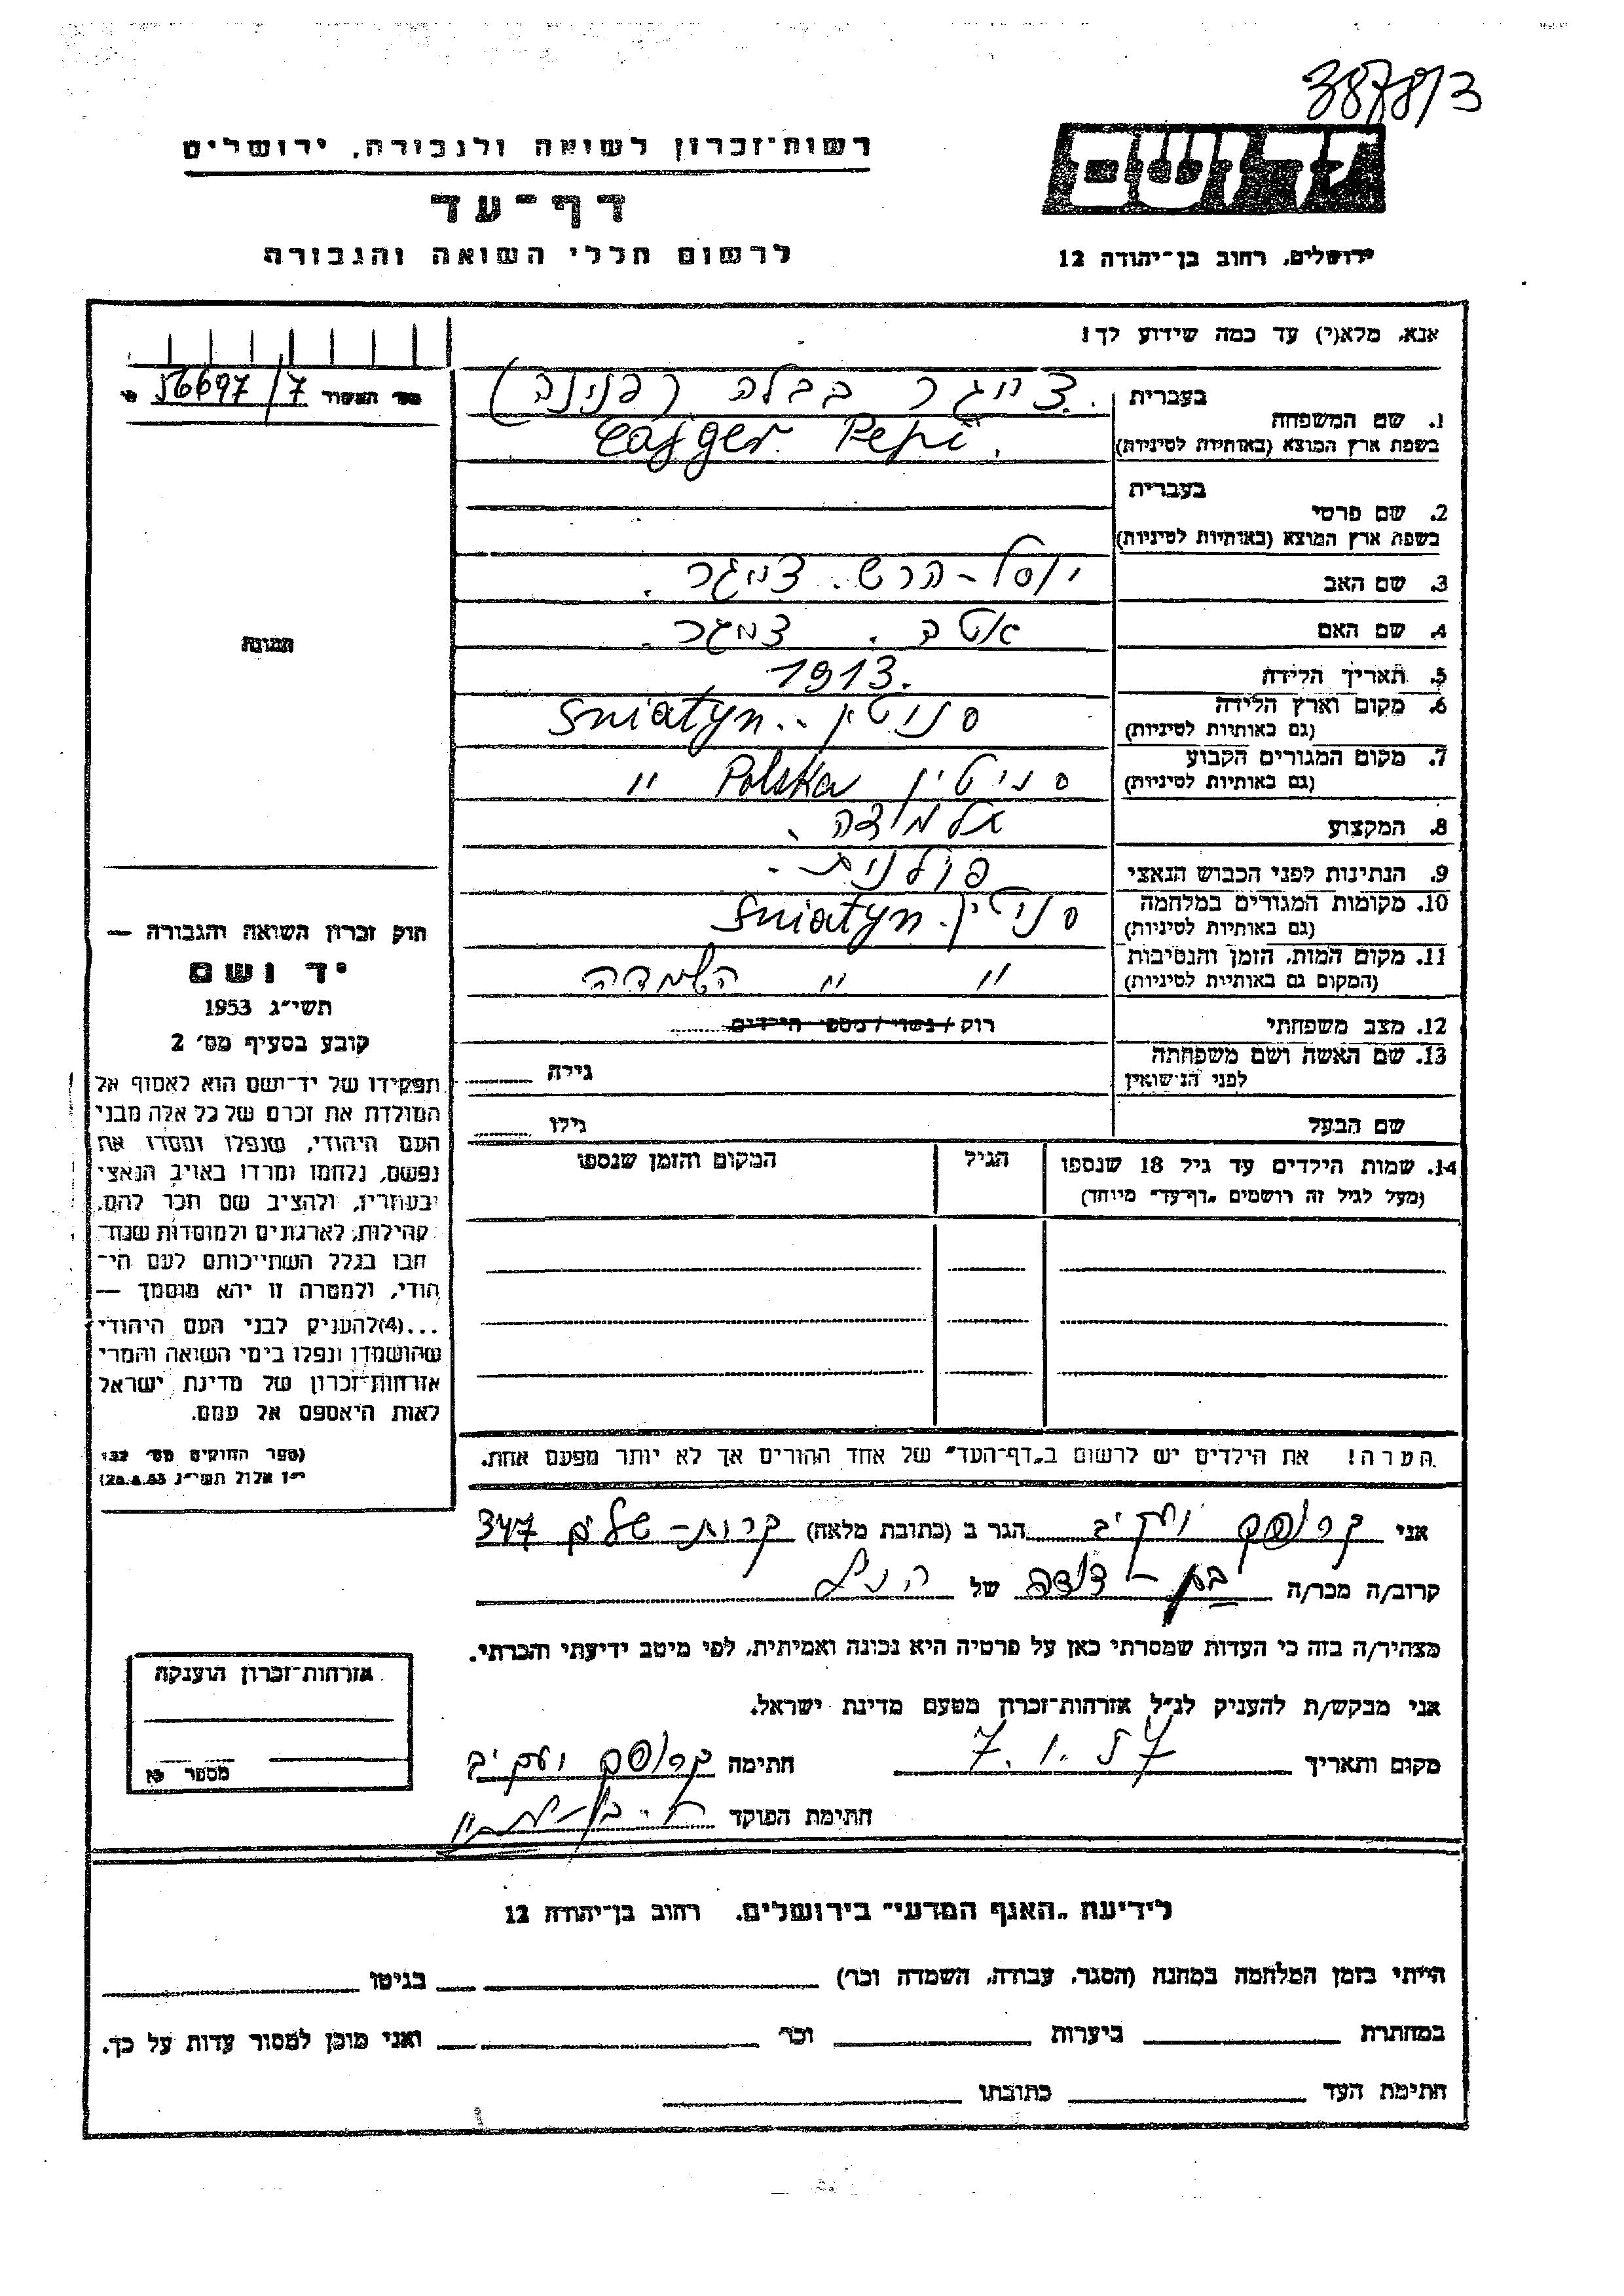 3878/3
רשות־זכרון לשואה ולגבורה, ירושלים
דף־עד
לרשום חללי השואה והגבורה
יד ושם
ירושלים, רחוב בן־יהודה 12
אנא, מלא(י) עד כמה שידוע לך!
56697/7
בעברית
1. שם המשפחה
צייגר בבלה (פנינה)
בשפת ארץ המוצא (באותיות לטיניות)
Cajger Pepi.
בעברית
2. שם פרטי
בשפת ארץ המוצא (באותיות לטיניות)
3. שם האב יוסל-הרש. צייגר.
4. שם האם אטה. צייגר.
5. תאריך הלידה 1913.
6. מקום וארץ הלידה
(גם באותיות לטיניות)
סניטין.. Sniatyn
7. מקום המגורים הקבוע
(גם באותיות לטיניות)
סניטין Polska "
8. המקצוע
9. הנתינות לפני הכבוש הנאצי פולנית.
10. מקומות המגורים במלחמה
(גם באותיות לטיניות)
סניטין. Sniatyn
11. מקום המות, הזמן והנסיבות
(המקום גם באותיות לטיניות)
" " השמדה
12. מצב משפחתי רוק / נשוי / מספר הילדים
13. שם האשה ושם משפחתה
לפני הנישואין
גילה
שם הבעל גילו
14. שמות הילדים עד גיל 18 שנספו
(מעל לגיל זה רושמים „דף־עד" מיוחד)
הגיל
המקום והזמן שנספו
הערה! את הילדים יש לרשום ב„דף־העד" של אחד ההורים אך לא יותר מפעם אחת.
תמונה
חוק זכרון השואה והגבורה —
יד ושם
תשי״ג 1953
קובע בסעיף מס׳ 2
תפקידו של יד־ושם הוא לאסוף אל
המולדת את זכרם של כל אלה מבני
העם היהודי, שנפלו ומסרו את
נפשם, נלחמו ומרדו באויב הנאצי
ובעוזריו, ולהציב שם וזכר להם,
לקהילות, לארגונים ולמוסדות שנח־
רבו בגלל השתייכותם לעם הי־
הודי, ולמטרה זו יהא מוסמך —
...(4)להעניק לבני העם היהודי
שהושמדו ונפלו בימי השואה והמרי
אזרחות־זכרון של מדינת ישראל
לאות היאספם אל עמם.
(ספר החוקים מס׳ 132
י״ז אלול תשי״ג 28.8.53)
אני הגר ב (כתובת מלאה) 347
קרוב/ה מכר/ה בת-דודה של הנ"ל
מצהיר/ה בזה כי העדות שמסרתי כאן על פרטיה היא נכונה ואמיתית, לפי מיטב ידיעתי והכרתי.
אני מבקש/ת להעניק לנ״ל אזרחות־זכרון מטעם מדינת ישראל.
מקום ותאריך 7.1.57 חתימה
חתימת הפוקד
אזרחות־זכרון הוענקה
מספר
לידיעת „האגף המדעי" בירושלים, רחוב בן־יהודה 12
הייתי בזמן המלחמה במחנה (הסגר, עבודה, השמדה וכו׳) בגיטו
במחתרת ביערות וכו׳ ואני מוכן למסור עדות על כך.
חתימת העד כתובתו